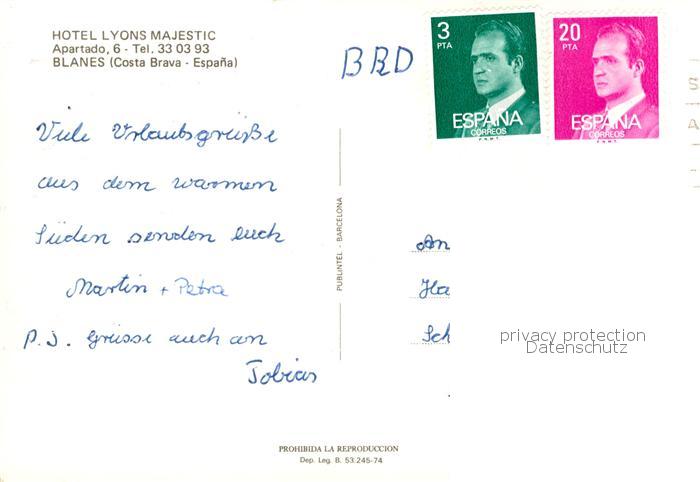 HOTEL LYONS MAJESTIC
Apartado, 6 - Tel. 33 03 93
BLANES (Costa Brava - España)
BRD
3
PTA
ESPAÑA
CORREOS
F.N.M.T.
20
PTA
ESPAÑA
CORREOS
F.N.M.T.
Viele Urlaubsgrüße
aus dem warmen
Süden senden euch
Martin + Petra
P.S. Grüsse auch an
Tobias
PUBLINTEL - BARCELONA
An
Ha
Sch
privacy protection
Datenschutz
PROHIBIDA LA REPRODUCCION
Dep. Leg. B. 53.245-74